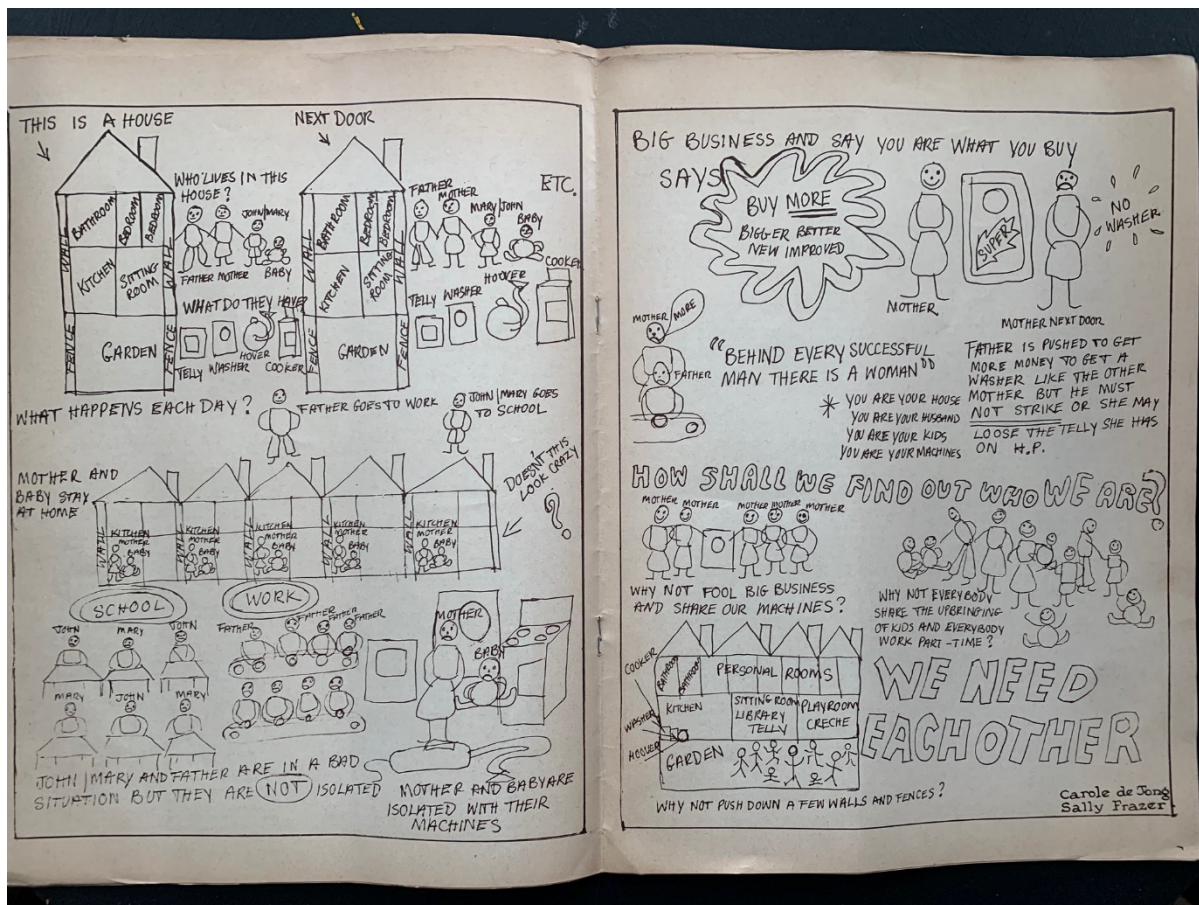 THIS IS A HOUSE
NEXT DOOR
WHO LIVES IN THIS
HOUSE?
JOHN/MARY
FATHER MOTHER
BABY
BATHROOM
BEDROOM
BEDROOM
KITCHEN
SITTING
ROOM
WALL
WALL
FENCE
GARDEN
FENCE
WHAT DO THEY HAVE?
TELLY
WASHER
HOVER
COOKER
BATHROOM
BEDROOM
BEDROOM
KITCHEN
SITTING
ROOM
WALL
WALL
FENCE
GARDEN
FENCE
ETC.
FATHER
MOTHER
MARY/JOHN
BABY
TELLY
WASHER
HOOVER
COOKER
WHAT HAPPENS EACH DAY?
FATHER GOES TO WORK
JOHN/MARY GOES
TO SCHOOL
MOTHER AND
BABY STAY
AT HOME
DOESN'T THIS
LOOK CRAZY
?
WALL
KITCHEN
MOTHER
BABY
WALL
KITCHEN
MOTHER
BABY
WALL
KITCHEN
MOTHER
BABY
WALL
KITCHEN
MOTHER
BABY
WALL
KITCHEN
MOTHER
BABY
SCHOOL
JOHN
MARY
JOHN
MARY
JOHN
MARY
WORK
FATHER
FATHER
FATHER
FATHER
MOTHER
BABY
JOHN/MARY AND FATHER ARE IN A BAD
SITUATION BUT THEY ARE NOT ISOLATED
MOTHER AND BABY ARE
ISOLATED WITH THEIR
MACHINES
BIG BUSINESS AND SAY YOU ARE WHAT YOU BUY
SAYS
BUY MORE
BIGGER BETTER
NEW IMPROVED
MOTHER
SUPER
MOTHER NEXT DOOR
NO
WASHER
MOTHER
MORE
FATHER
"BEHIND EVERY SUCCESSFUL
MAN THERE IS A WOMAN"
* YOU ARE YOUR HOUSE
YOU ARE YOUR HUSBAND
YOU ARE YOUR KIDS
YOU ARE YOUR MACHINES
FATHER IS PUSHED TO GET
MORE MONEY TO GET A
WASHER LIKE THE OTHER
MOTHER BUT HE MUST
NOT STRIKE OR SHE MAY
LOOSE THE TELLY SHE HAS
ON H.P.
HOW SHALL WE FIND OUT WHO WE ARE?
MOTHER
MOTHER
MOTHER
MOTHER
MOTHER
WHY NOT FOOL BIG BUSINESS
AND SHARE OUR MACHINES?
WHY NOT EVERYBODY
SHARE THE UPBRINGING
OF KIDS AND EVERYBODY
WORK PART-TIME?
COOKER
WASHER
HOOVER
BATHROOM
BATHROOM
PERSONAL ROOMS
KITCHEN
SITTING ROOM
LIBRARY
TELLY
PLAYROOM
CRECHE
GARDEN
WHY NOT PUSH DOWN A FEW WALLS AND FENCES?
WE NEED
EACHOTHER
Carole de Jong
Sally Frazer